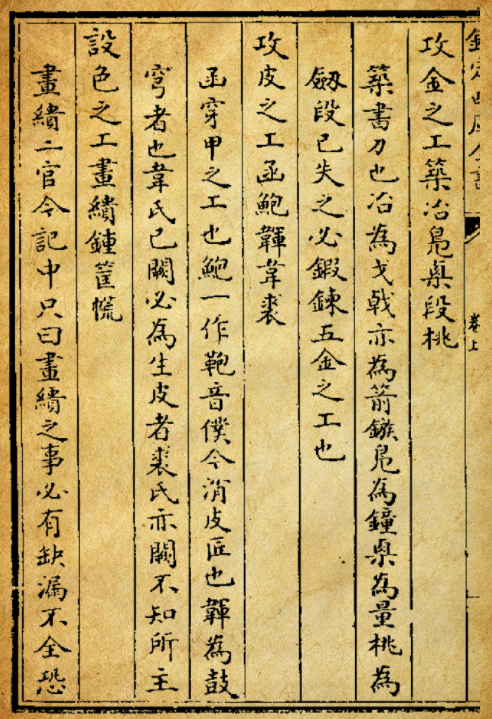 欽定四庫全書
卷上
攻金之工築冶鳧㮚段桃
築書刀也冶為戈戟亦為箭鏃鳧為鐘㮚為量桃為
劔段已失之必鍜鍊五金之工也
攻皮之工函鮑韗韋裘
函穿甲之工也鮑一作鞄音僕今消皮匠也韗為鼓
穹者也韋氏已闕必為生皮者裘氏亦闕不知所主
設色之工畫繢鍾筐㡆
畫繢二官今記中只曰畫繢之事必有缺漏不全恐